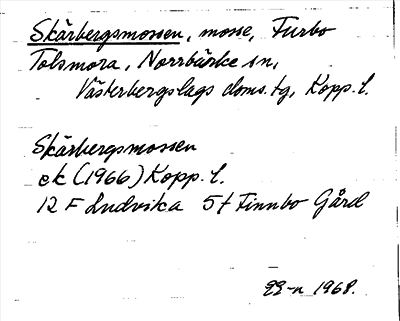 Skärbergsmossen, mosse, Furbo
Tolsmora, Norrbärke sn,
Västerbergslags doms.tg, Kopp. l.
Skärbergsmossen
ek (1966) Kopp. l.
12 F Ludvika 5f Finnbo Gård
1968.